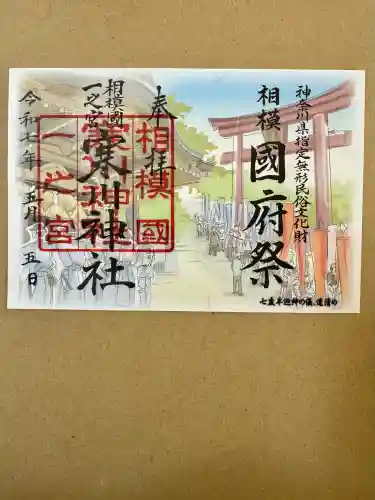 神奈川県指定無形民俗文化財
相模
國府祭
七度半迎神の儀、道清め
奉拝
相模國
一之宮
寒川神社
相模國
一之宮
令和七年
五月
五日